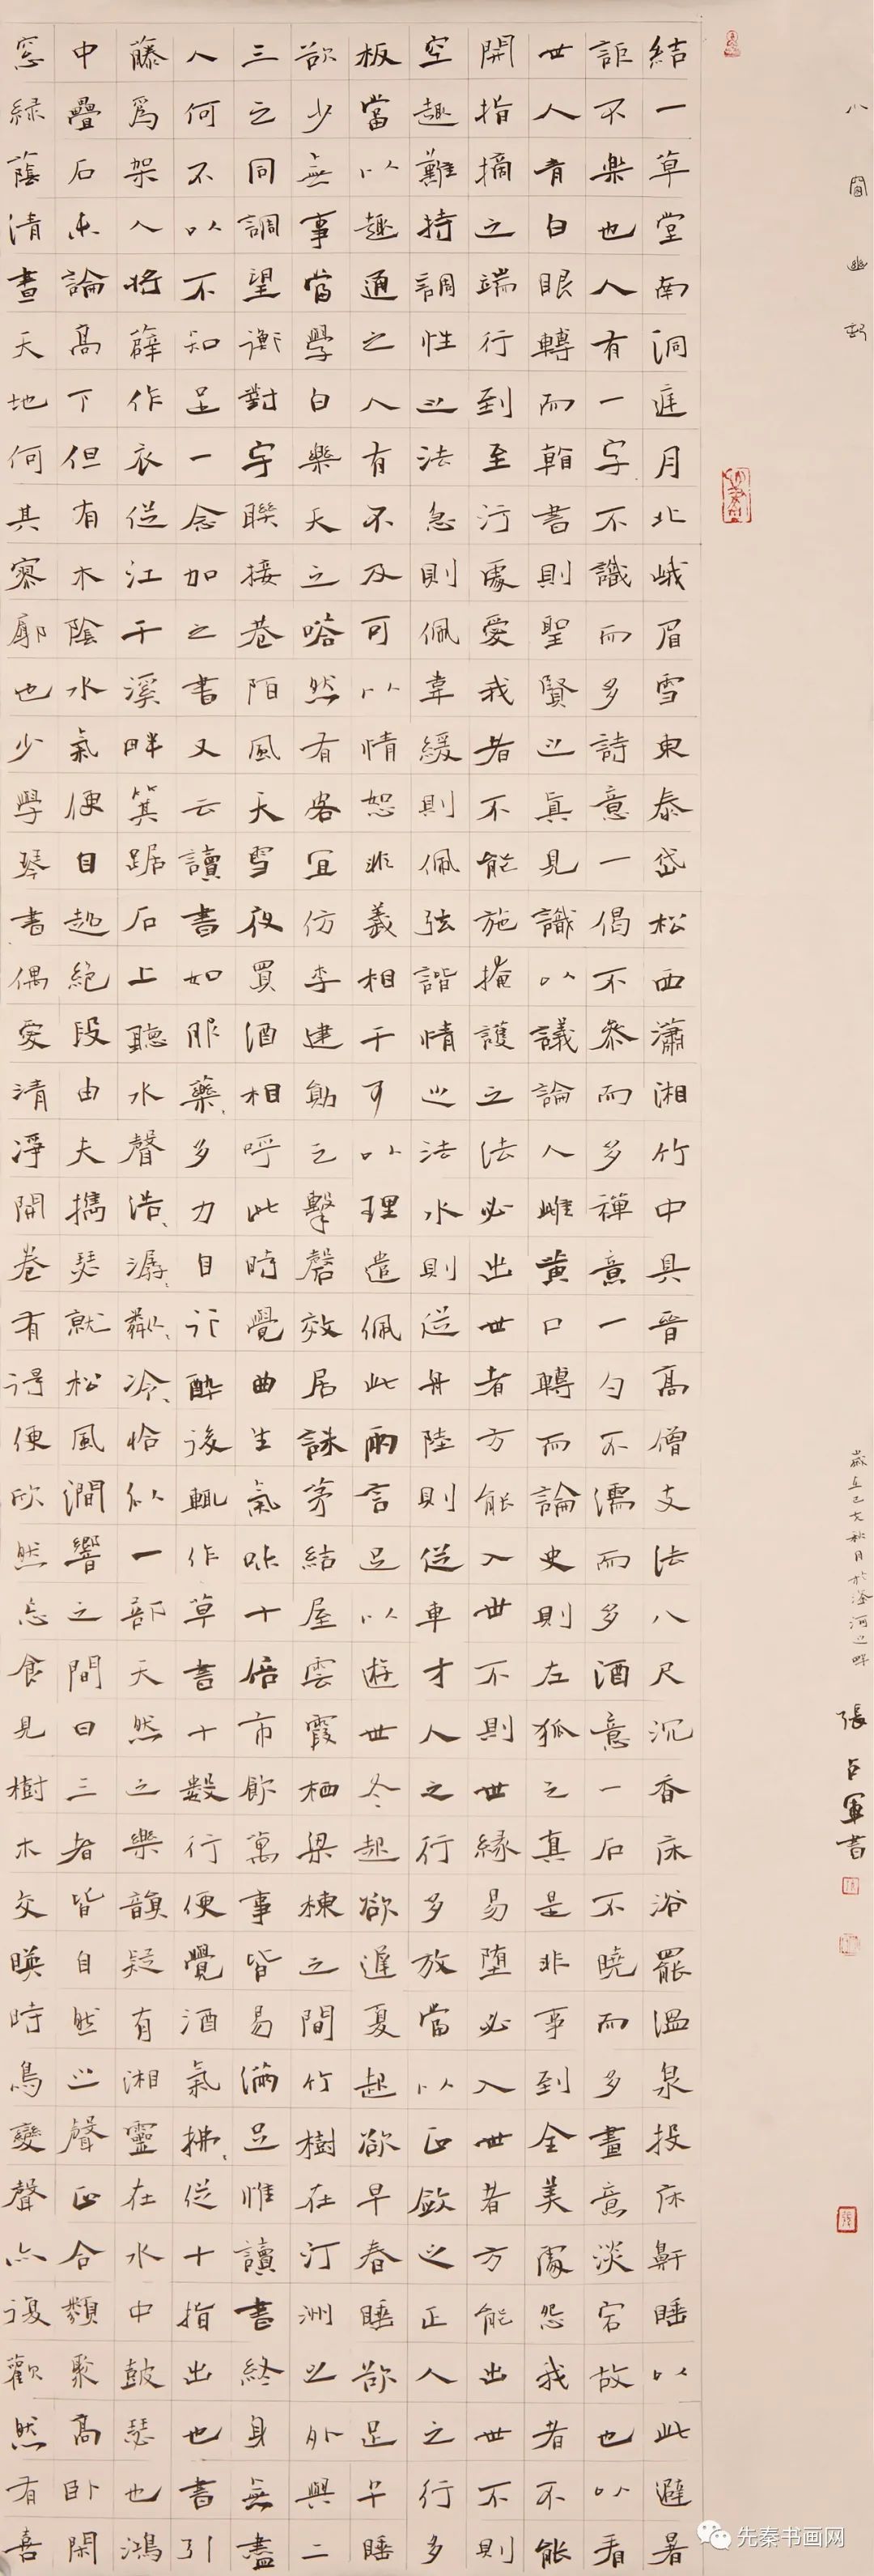 小窗幽記
結一草堂南洞庭月北峨眉雪東泰岱松西瀟湘竹中具晉高僧支法八尺沉香床浴罷溫泉投床鼾睡以此避暑
詎不樂也人有一字不識而多詩意一偈不參而多禪意一勺不濡而多酒意一石不曉而多畫意淡宕故也以看
世人青白眼轉而翰書則聖賢之真見識以議論人雌黃口轉而論史則左狐之真是非事到全美處怨我者不能
開指摘之端行到至污處愛我者不能施掩護之法必出世者方能入世不則世緣易墮必入世者方能出世不則
空趣難持調性之法急則佩韋緩則佩弦諧情之法水則從舟陸則從車才人之行多放當以正斂之正人之行多
板當以趣通之人有不及可以情恕非義相干可以理遣佩此兩言足以遊世冬起欲遲夏起欲早春睡欲足午睡
欲少無事當學白樂天之嗒然有客宜仿李建勛之擊磬效居誅茅結屋雲霞栖梁棟之間竹樹在汀洲之外與二
三之同調望衡對宇聯接巷陌風天雪夜買酒相呼此時覺曲生氣味十倍市飲萬事皆易滿足惟讀書終身無盡
人何不以不知足一念加之書又云讀書如服藥、多力自行醉後輒作草書十數行便覺酒氣拂、從十指出也書引
藤為架人將薜作衣從江干溪畔箕踞石上聽水聲浩、潺、粼、冷、恰似一部天然之樂韻疑有湘靈在水中鼓瑟也鴻
中疊石未論高下但有木陰水氣便自超絕段由夫攜瑟就松風澗響之間曰三者皆自然之聲正合類聚高臥閑
窓綠蔭清晝天地何其寥廓也少學琴書偶愛清淨開卷有得便欣然忘食見樹木交映時鳥變聲亦復歡然有喜
歲在己亥秋月於澄河之畔
張占軍書
先秦书画网